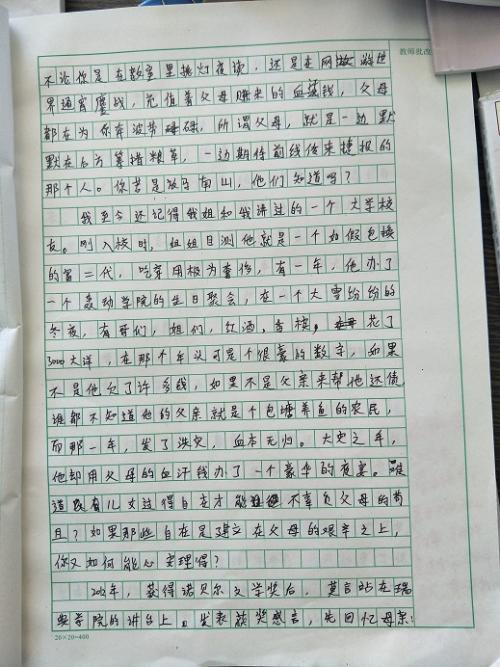 教师批改
不论你是在教室里挑灯夜读，还是在网游世
界通宵鏖战，充值着父母赚来的血汗钱，父母
都在为你奔波劳碌，所谓父母，就是一边默
默在后方筹措粮草，一边期待前线传来捷报的
那个人。你若是放马南山，他们知道吗？
我至今还记得我姐和我讲过的一个大学校
友。刚入校时，姐姐目测他就是一个如假包换
的富二代，吃穿用极为奢侈，有一年，他办了
一个轰动学院的生日聚会，在一个大雪纷纷的
冬夜，有哥们，姐们，红酒，香槟，花了
3000大洋，在那个年头可是个很高的数字，如果
不是他欠了许多钱，如果不是父亲来帮他还债
谁都不知道他的父亲就是个包塘养鱼的农民，
而那一年，发了洪灾，血本无归。大灾之年，
他却用父母的血汗钱办了一个豪华的夜宴。难
道只有儿女过得自在才能不辜负父母的苟
且？如果那些自在是建立在父母的艰辛之上，
你又如何能心安理得？
2012年，获得诺贝尔文学奖后，莫言站在瑞
典学院的讲台上，发表获奖感言，先回忆母亲：
20×20=400